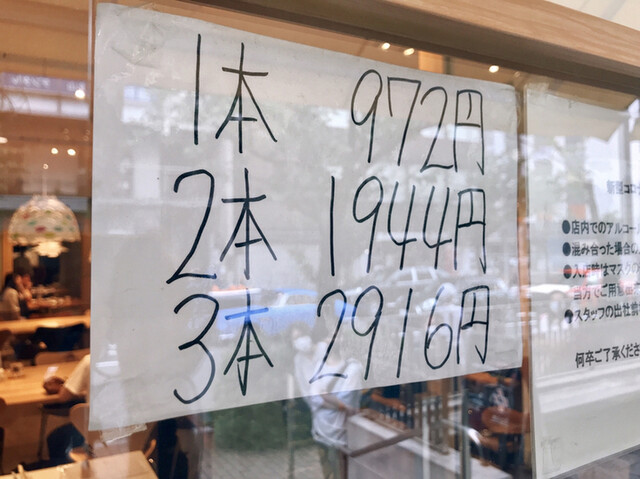 1本 972円
2本 1944円
3本 2916円
新型コロ
●店内でのアルコー
●混み合った場合の
当方でご用意
●スタッフの出社前
何卒ご了承くださ